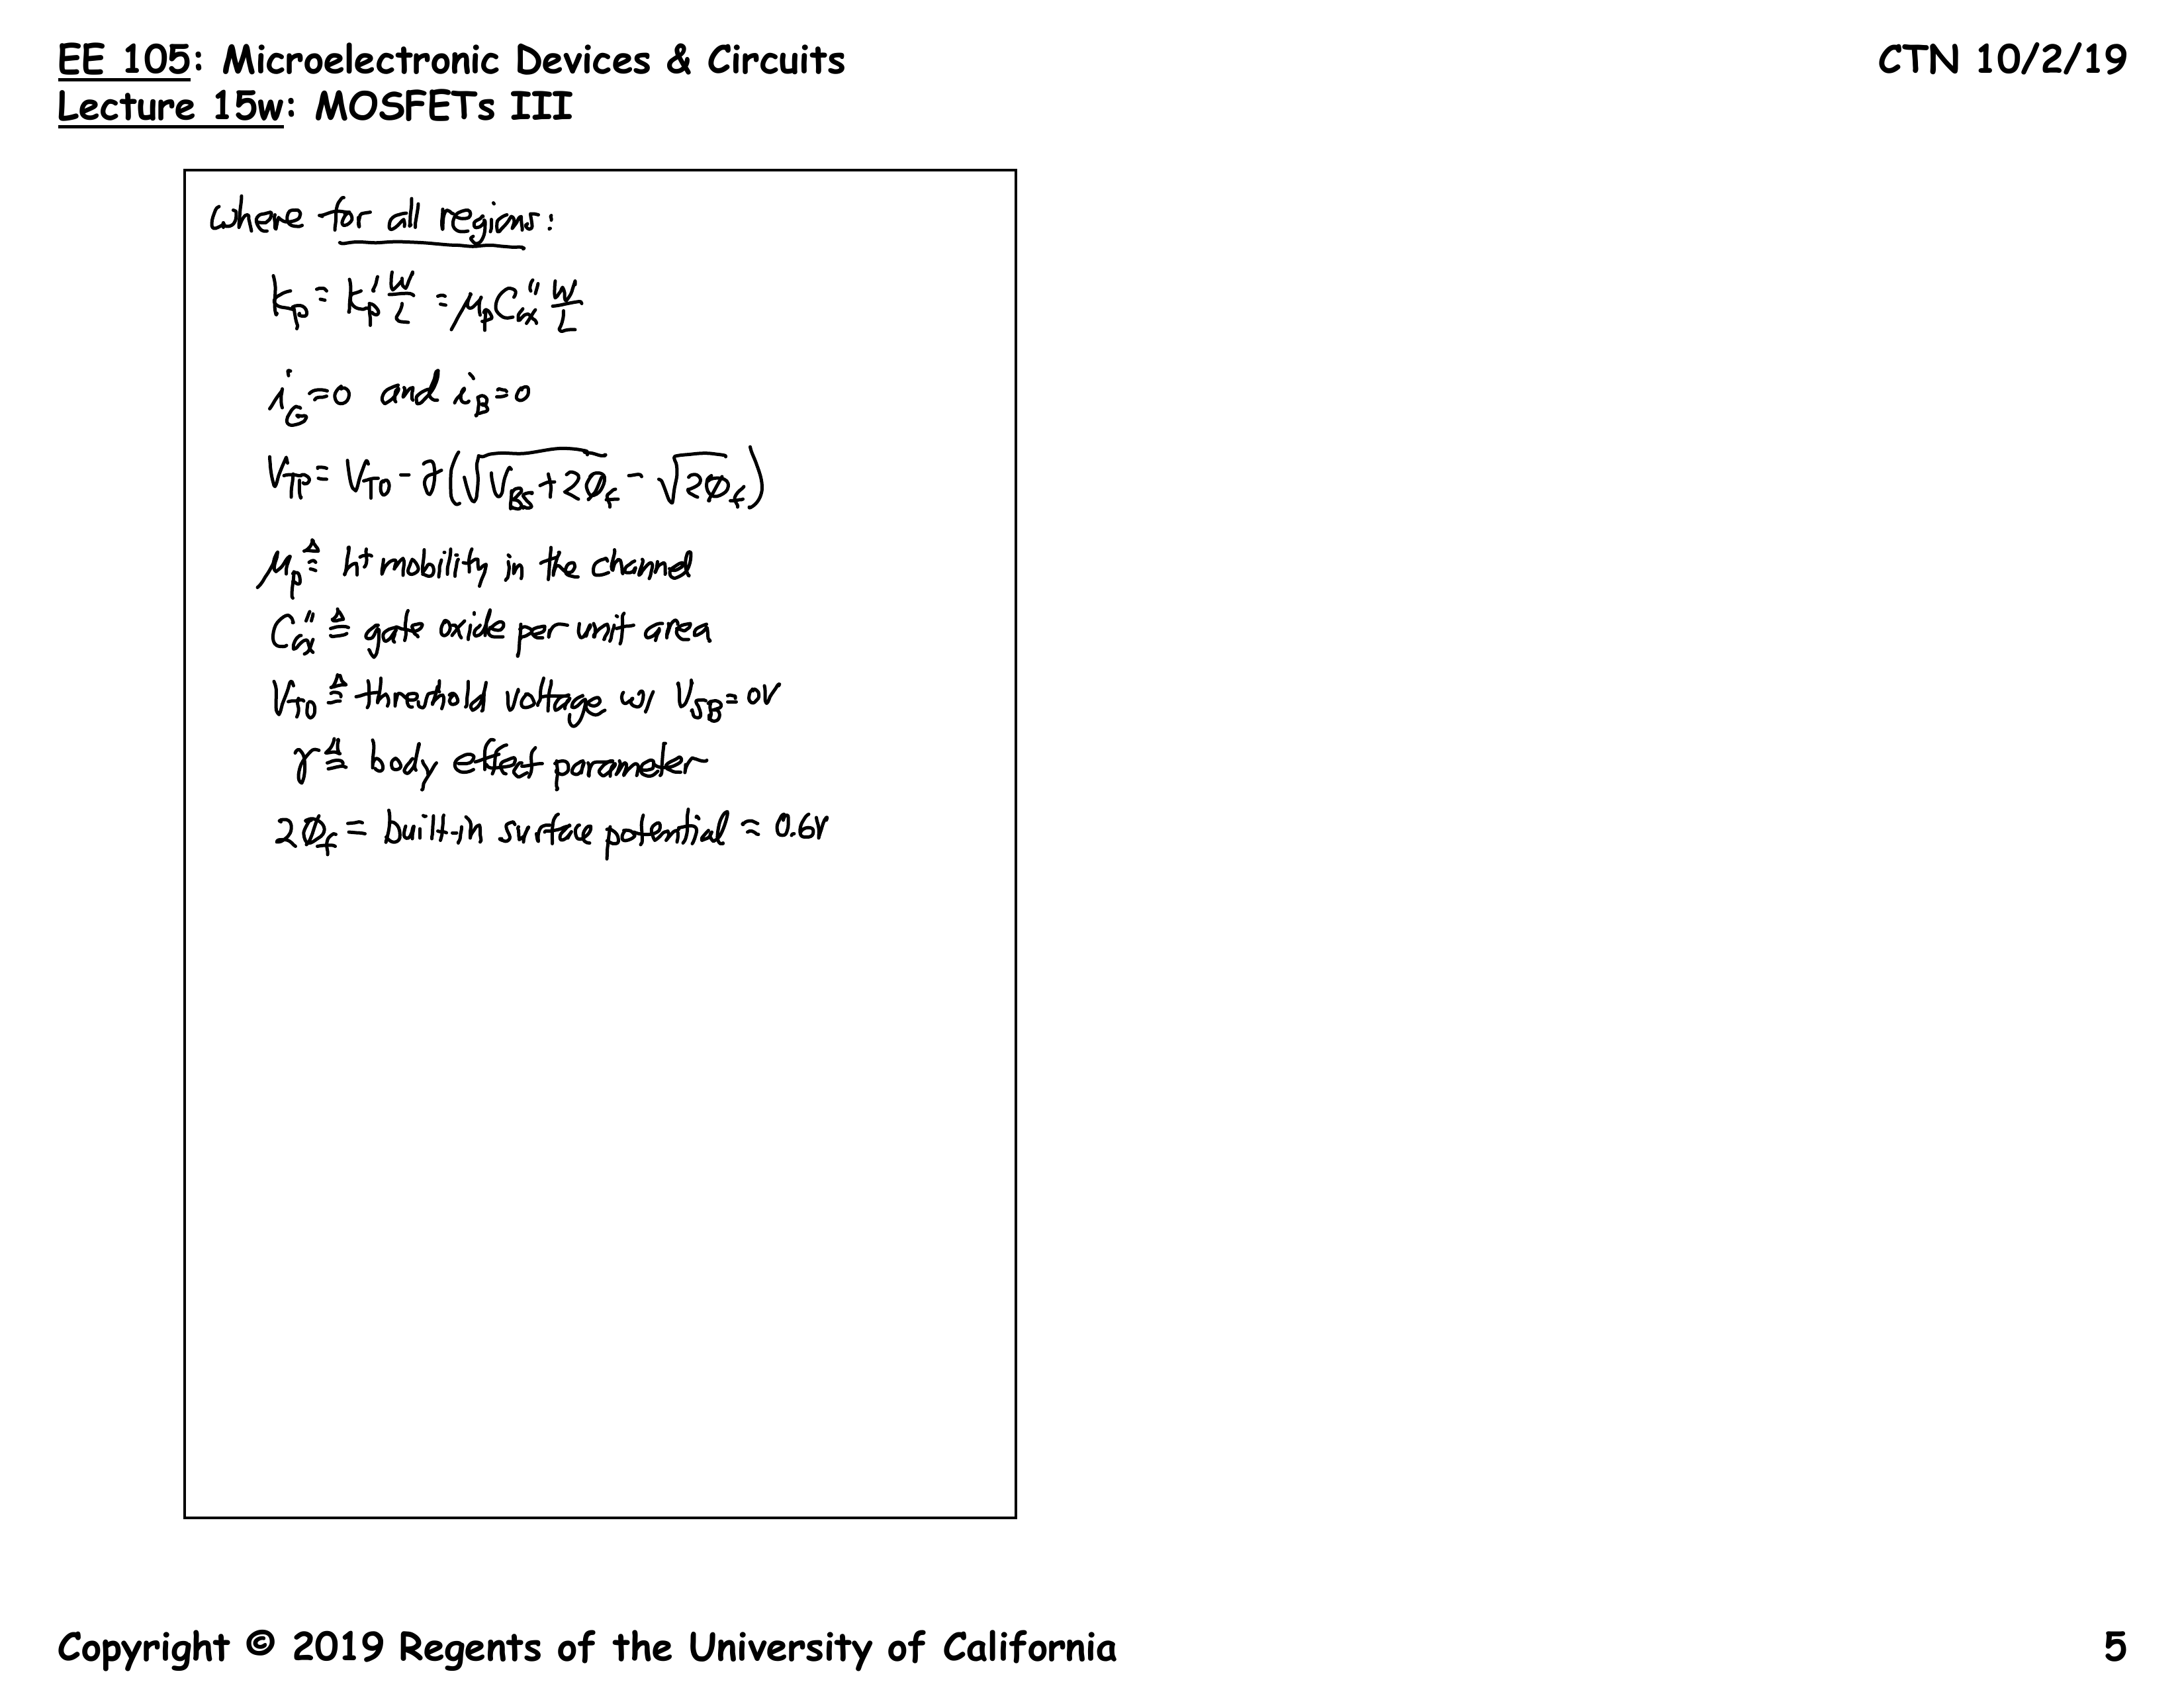 EE 105: Microelectronic Devices & Circuits
CTN 10/2/19
Lecture 15w: MOSFETs III
where for all regions:
Kp = Kp' W/L = μp Cox'' W/L
iG=0 and iB=0
VTP = VTO - γ(√(VBS + 2φf) - √(2φf))
μp ≜ h+ mobility in the channel
Cox'' ≜ gate oxide per unit area
VTO ≜ threshold voltage w/ VSB = 0V
γ ≜ body effect parameter
2φf = built-in surface potential ≈ 0.6V
Copyright © 2019 Regents of the University of California
5